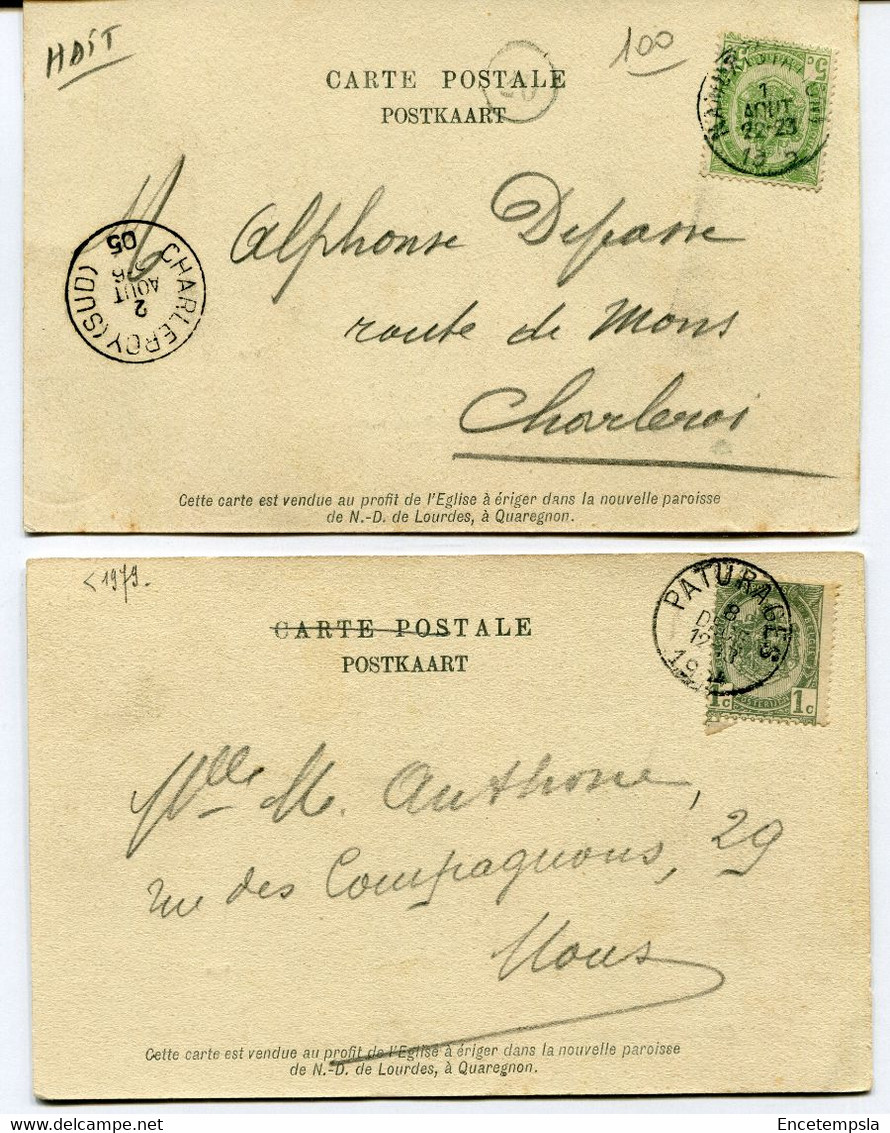 HDST
100
CARTE POSTALE
POSTKAART
1
AOUT
22-23
5c
M Alphonse Depasse
route de Mons
Charleroi
CHARLEROY (SUD)
2
AOUT
05
Cette carte est vendue au profit de l'Eglise à ériger dans la nouvelle paroisse
de N.-D. de Lourdes, à Quaregnon.
<1979.
CARTE POSTALE
POSTKAART
PATURAGES
8
1c 1c
Mlle M. Anthoine,
rue des Compagnons, 29
Mons
Cette carte est vendue au profit de l'Eglise à ériger dans la nouvelle paroisse
de N.-D. de Lourdes, à Quaregnon.
Encetempsla